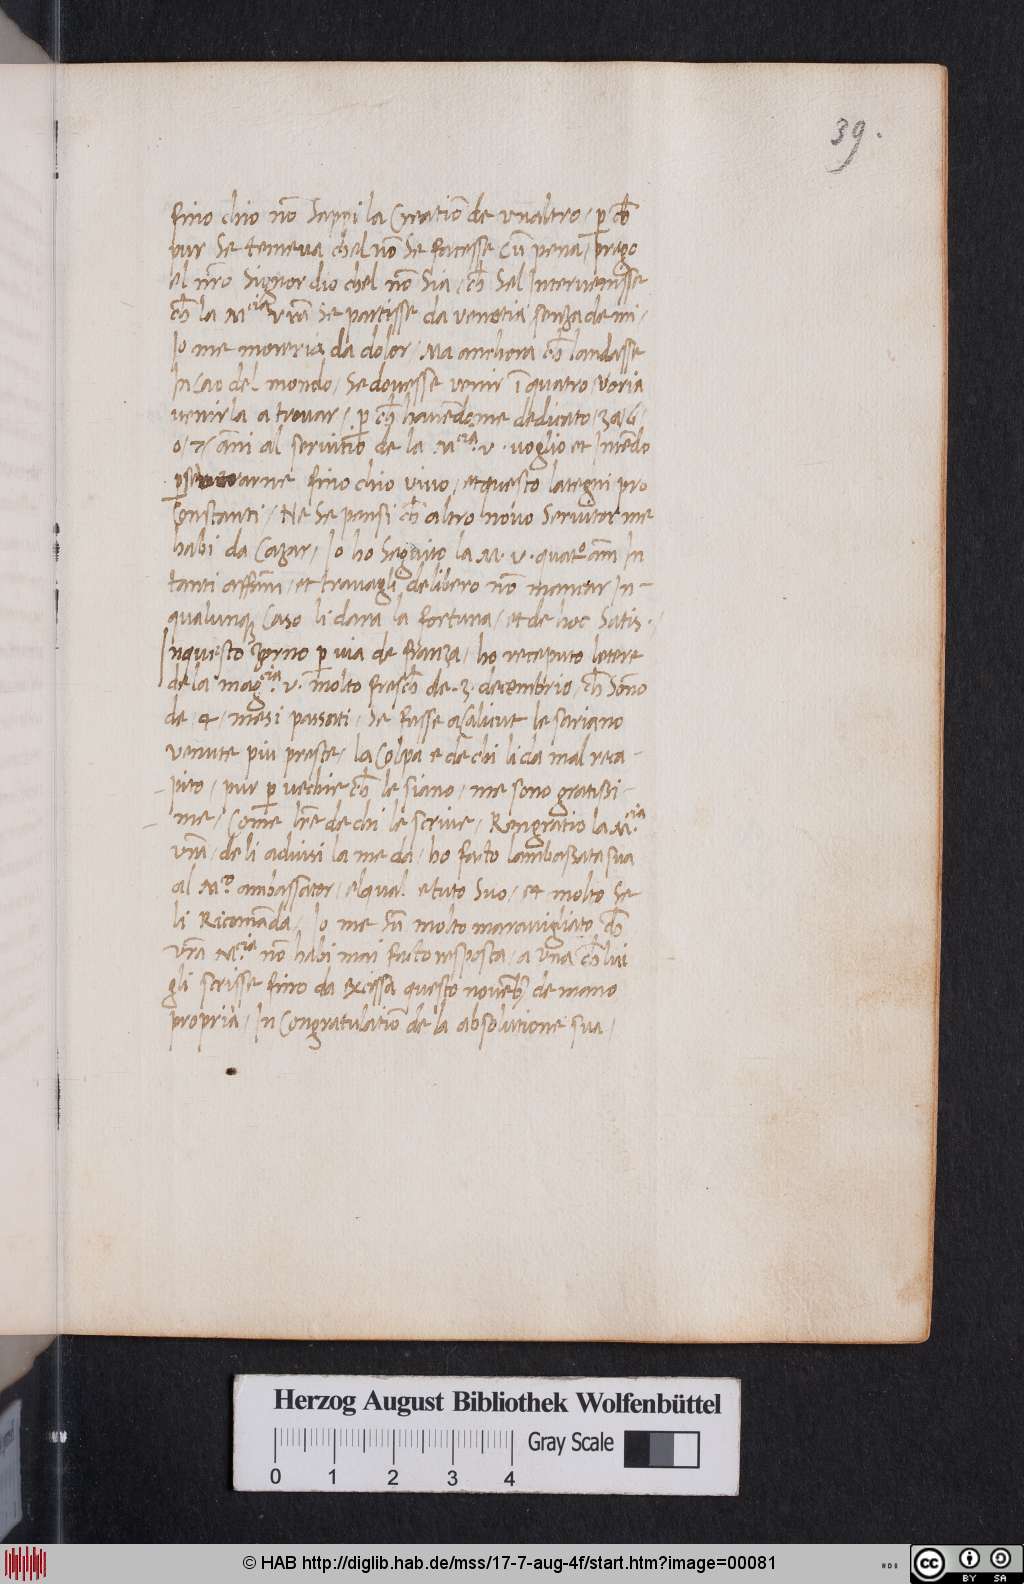 39.
fino chio nõ Sappi la Creatiõ de vnaltro, p̱ ch̃
pur Se temeua chel nõ Se facesse Cũ pena, prego
el nr̃o Signor dio chel nõ Sia, ch̃ Sel Interuenisse
ch̃ la M.cia vr̃a Se partisse da venetia senza de mi,
Io me moreria da dolor, Ma anchora ch̃ landasse
In Cao del mondo, Se douesse venir ĩ quatro, voria
venirla a trouar, p̱ ch̃ hauẽdome dedicato
añi al seruitio de la M.cia v. voglio et Intẽdo
fino chio viuo, et questo lategni pro
Constanti, Ne Se pensi ch̃ altro nouo Seruitor me
habi da Cazar, Io ho Seguito la M. v. quatº añi In
tanti affãni, et trauagli delibero nõ mancar In-
qualunq3 Caso li dara la fortuna, et de hoc Satis.
Inquesto Zorno p̱ via de franza, ho receputo letere
de la mag.cia v. molto fresch̃ de .3. decembrio, ch̃ Sono
de 4, mesi passati, Se fusse le sariano
venute piu preste, la Colpa e de chi li da mal reca-
pito, pur p̱ vechie ch̃ le siano, me sono gratissi-
me, Come lr̃e de chi le scriue, Rengratio la M.cia
vr̃a, de li aduisi la me da, ho facto lambazata sua
al M.º ambassator, elqual e tuto Suo, et molto Se
li Ricomãda, Io me Sũ molto marauigliato ch̃
vr̃a M.cia nõ habi mai facto resposta, a vna ch̃ lui
gli scrisse fino da questo nouẽb. de mano
propria, In Congratulatiõ de la absolutione sua,
Herzog August Bibliothek Wolfenbüttel
Gray Scale
0 1 2 3 4
© HAB http://diglib.hab.de/mss/17-7-aug-4f/start.htm?image=00081
cc BY SA